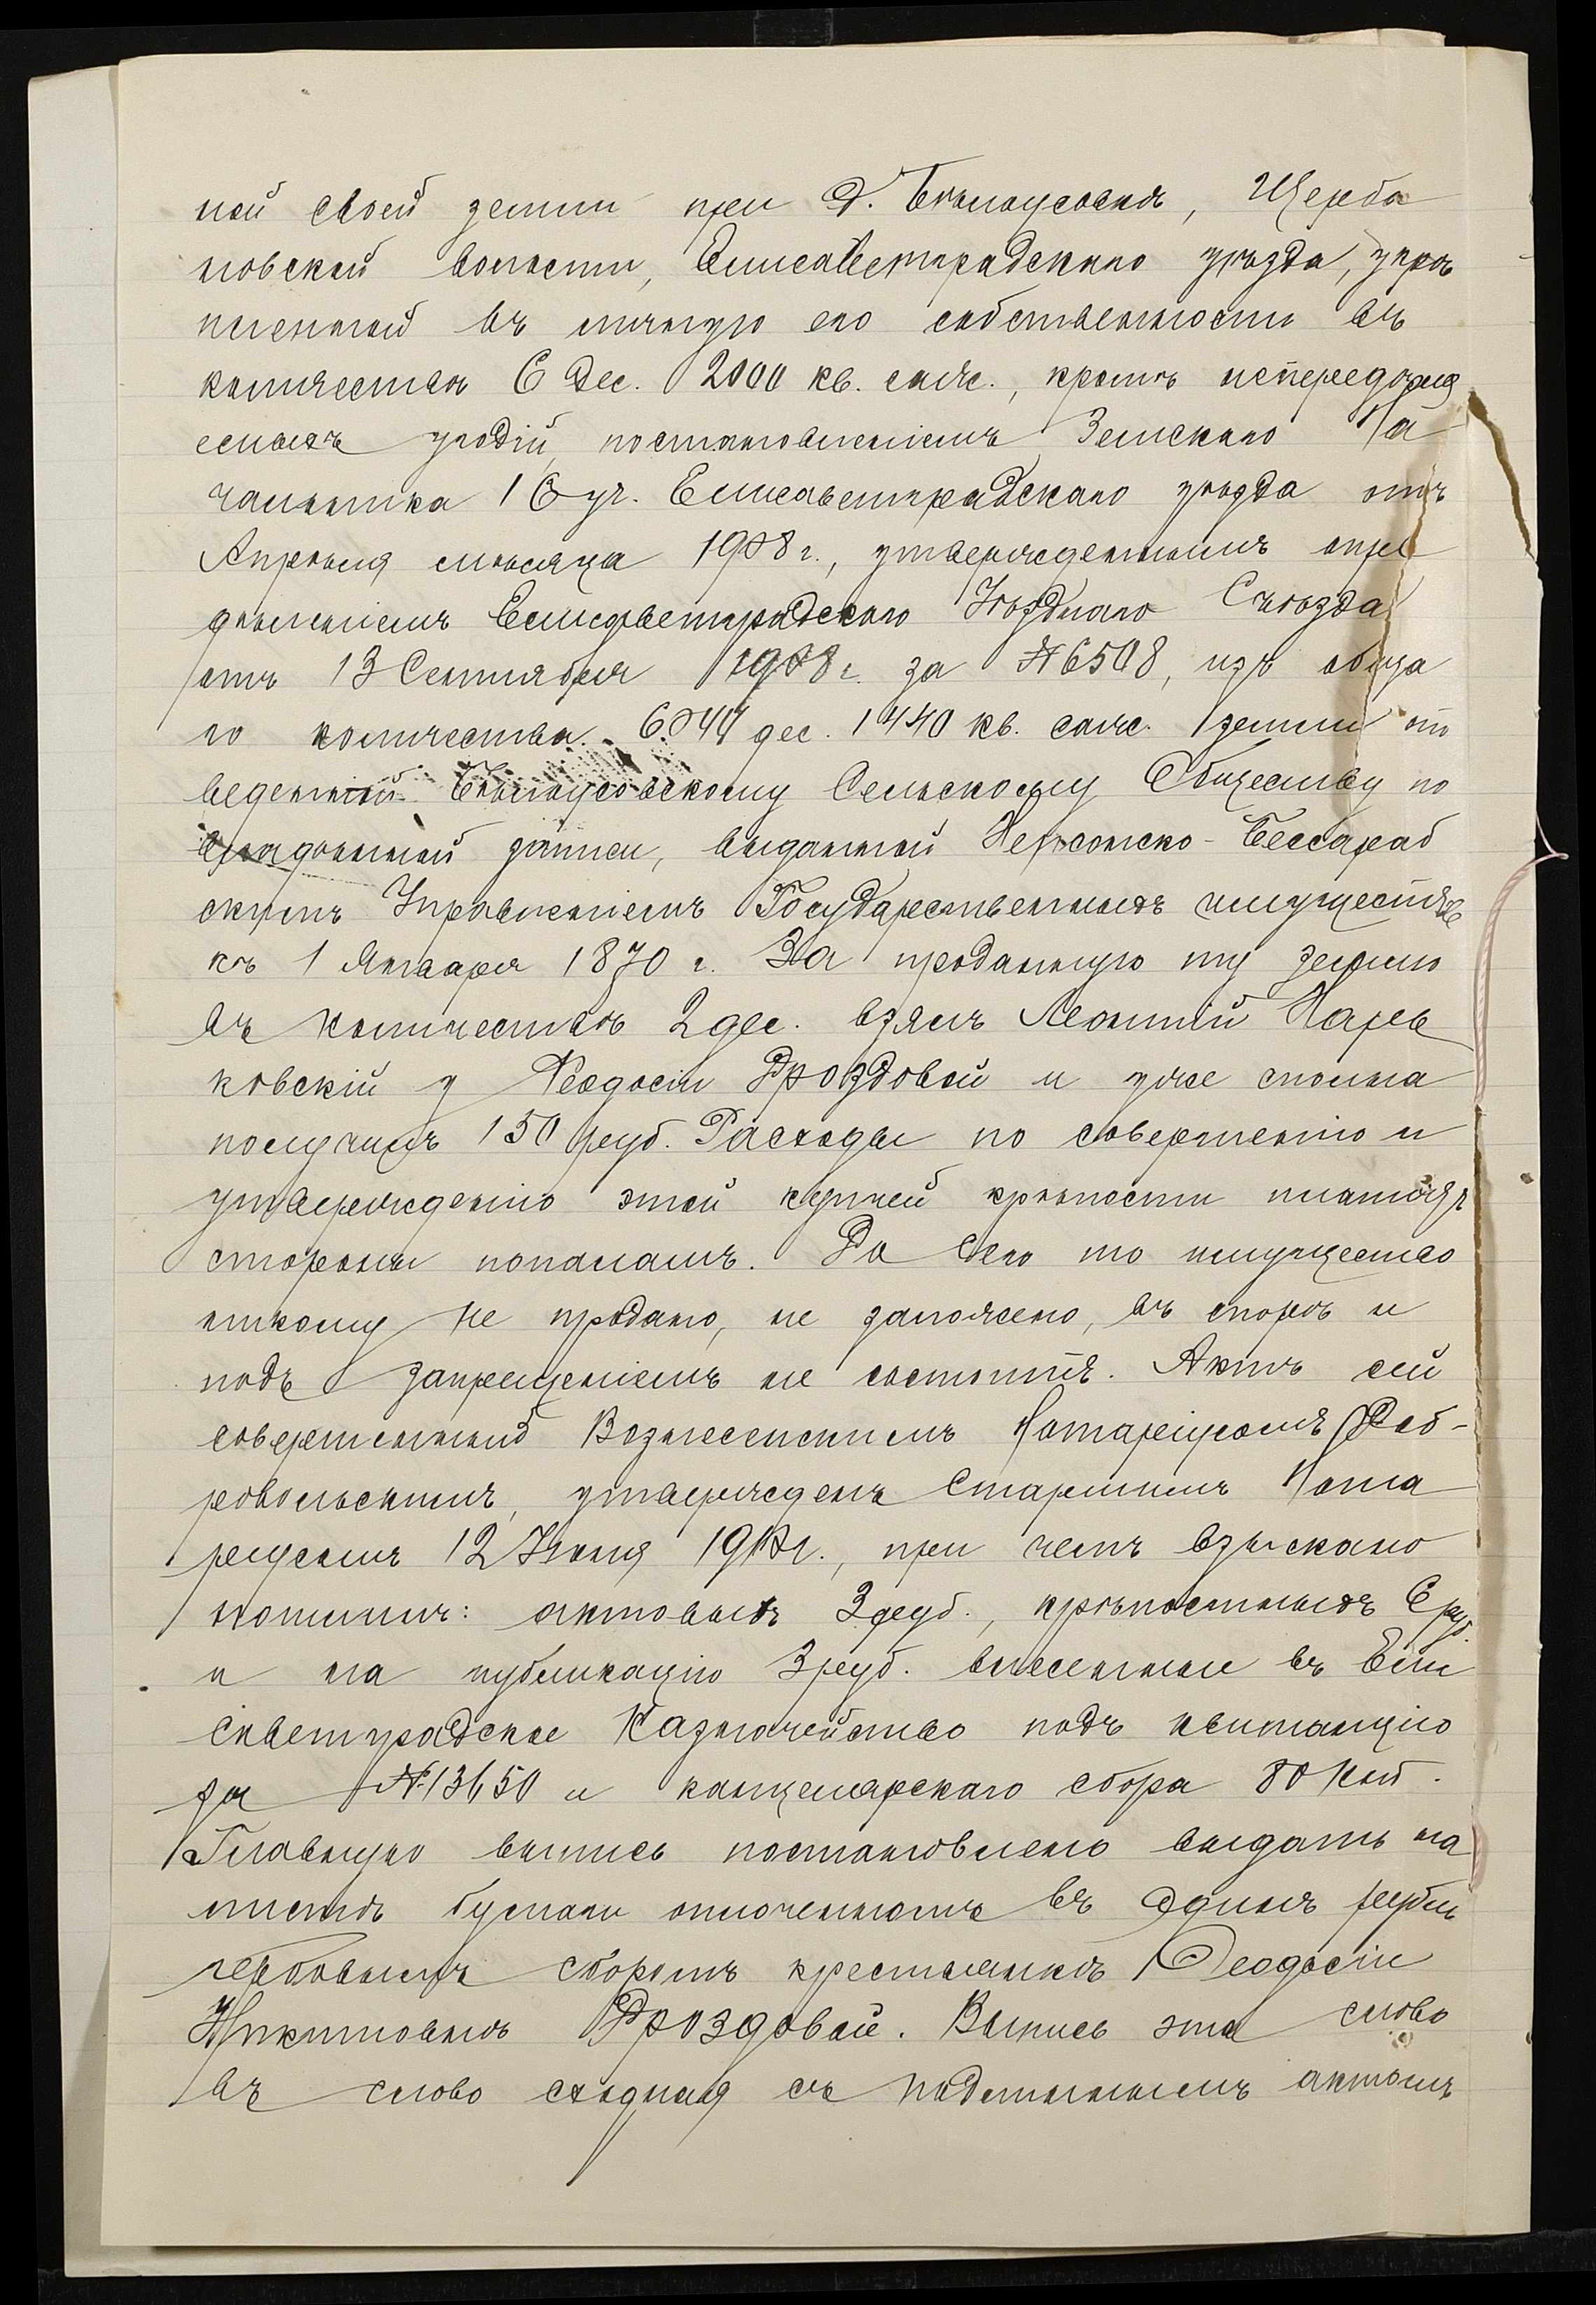 ной своей земли при д. Бѣлоусовкѣ, Щерба
новской волости, Елисаветградскаго уѣзда, укрѣ
пленной въ личную его собственность въ
количествѣ 6 дес. 2000 кв. саж., кромѣ непередѣля
емыхъ угодій, постановленіемъ Земскаго На
чальника 16 уч. Елисаветградскаго уѣзда отъ
Апрѣля мѣсяца 1908 г., утвержденнымъ опре
дѣленіемъ Елисаветградскаго Уѣзднаго Съѣзда
отъ 13 Сентября 1908 г. за № 6508, изъ обща
го количества 6044 дес. 1440 кв. саж. земли от
веденной Бѣлоусовскому Сельскому Обществу по
владѣнной записи, выданной Херсонско-Бессараб
скимъ Управленіемъ Государственныхъ имуществъ
къ 1 Января 1870 г. За проданную ту землю
въ количествѣ 2 дес. взялъ Леонтій Царев
ковскій у Феодосіи Дроздовой и уже сполна
получилъ 150 руб. Расходы по совершенію и
утвержденію этой купчей крѣпости платятъ
стороны пополамъ. До сего то имущество
никому не продано, не заложено, въ спорѣ и
подъ запрещеніемъ не состоитъ. Актъ сей
совершенный Вознесенскимъ Нотаріусомъ Доб-
ровольскимъ, утвержденъ Старшимъ Нота
ріусомъ 12 Іюня 1910 г., при чемъ взыскано
пошлинъ: актовыхъ 3 руб., крѣпостныхъ 6 руб.
и на публикацію 3 руб. внесенные въ Ели
саветградское Казначейство подъ квитанцію
за № 13650 и канцелярскаго сбора 80 коп.
Главную выпись постановлено выдать на
листѣ бумаги оплоченномъ въ одинъ рубль
гербовымъ сборомъ крестьянкѣ Феодосіи
Никитовнѣ Дроздовой. Выпись эта слово
въ слово сходная съ подлиннымъ актомъ